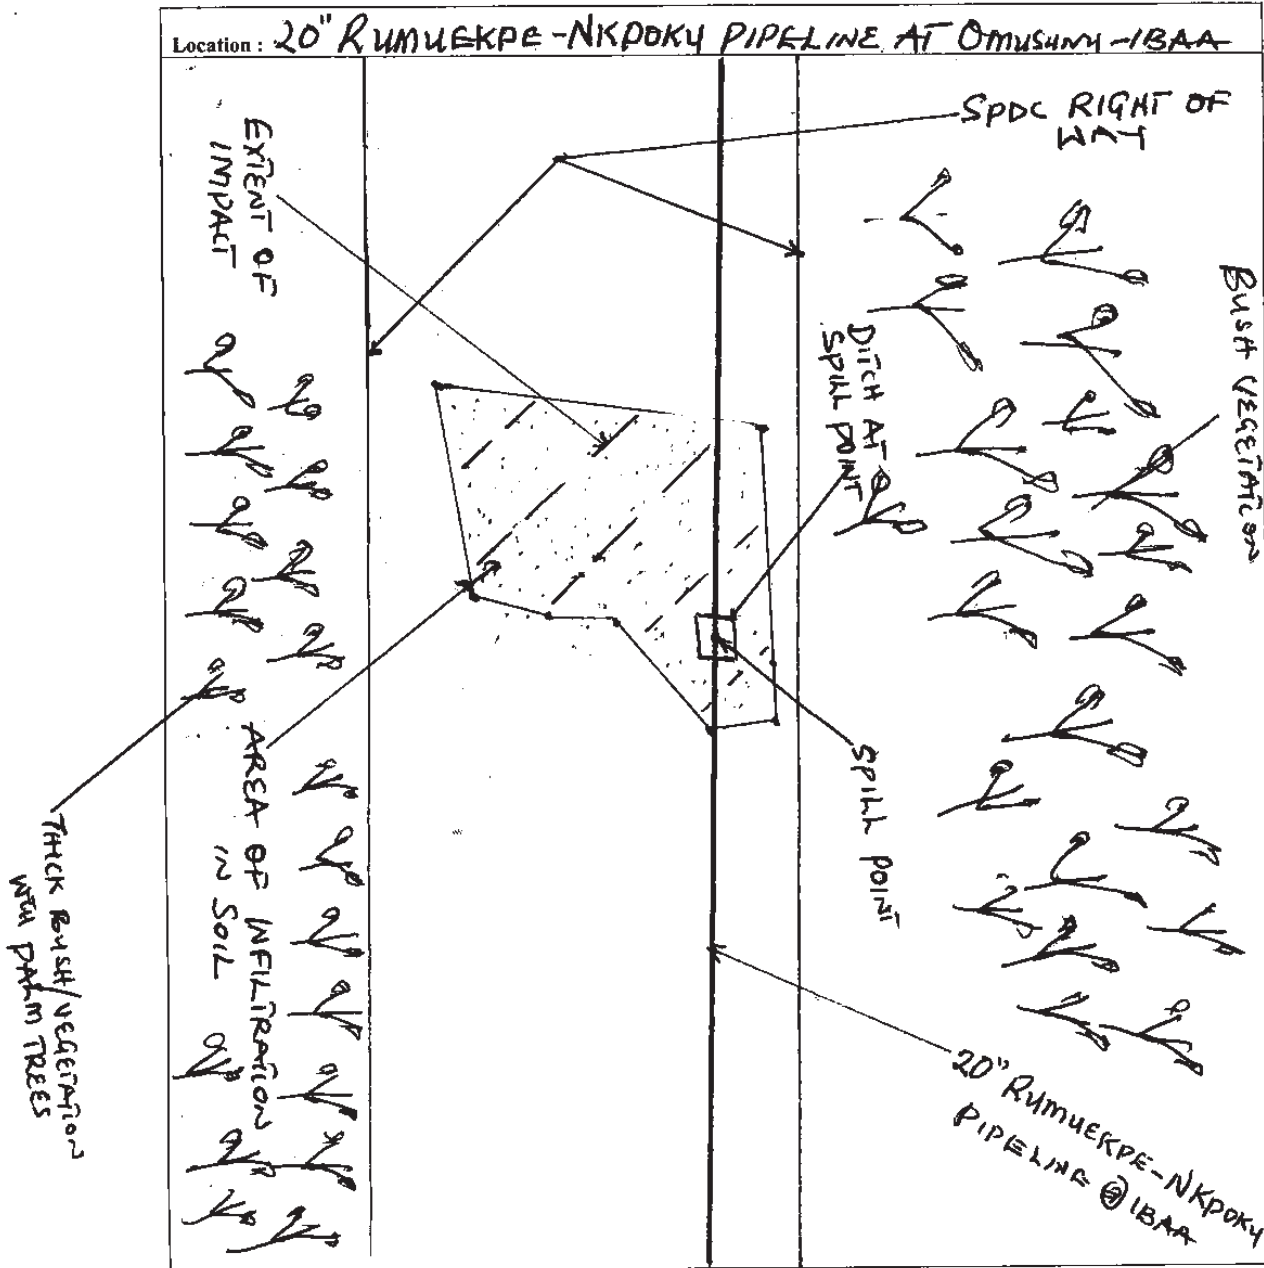 Location : 20" RUMUEKPE-NKPOKU PIPELINE AT OMUSUNU-IBAA
SPDC RIGHT OF
WAY
EXTENT OF
IMPACT
BUSH VEGETATION
DITCH AT
SPILL POINT
SPILL POINT
AREA OF INFILTRATION
IN SOIL
THICK BUSH/VEGETATION
WITH PALM TREES
20" RUMUEKPE-NKPOKU
PIPELINE @ IBAA